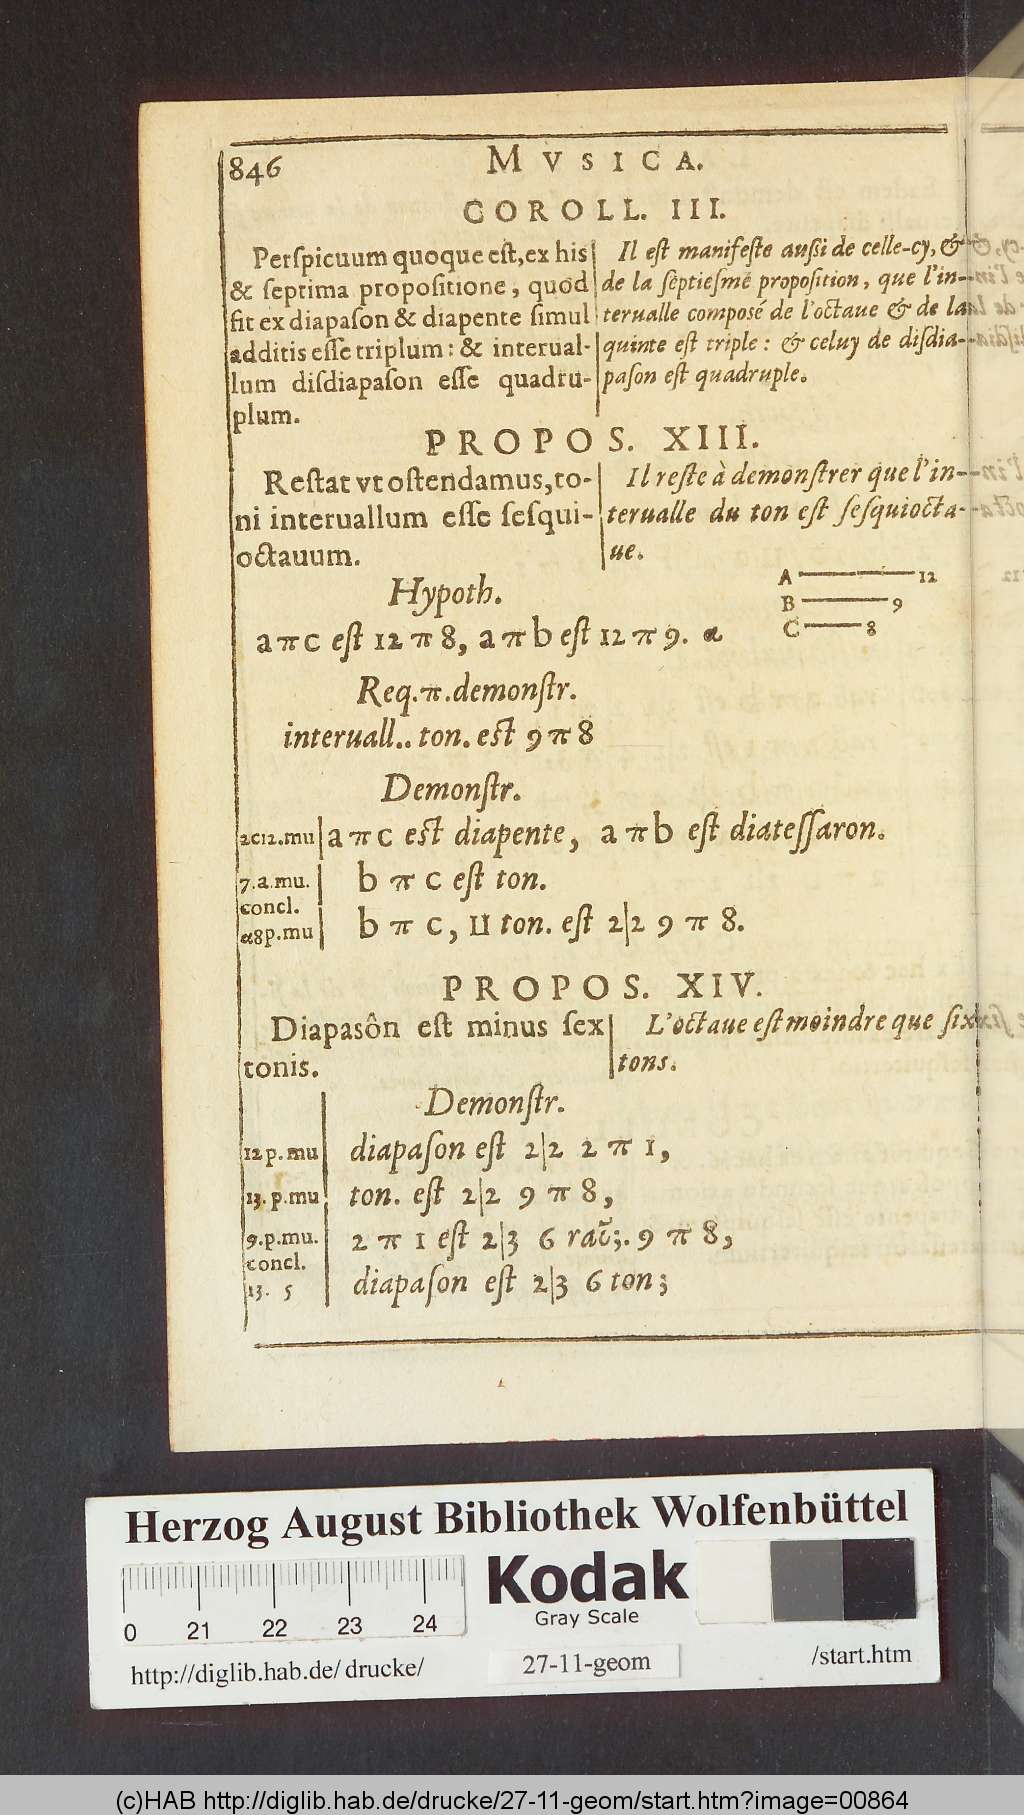 846 MVSICA.
COROLL. III.
Perſpicuum quoque eſt, ex his
& ſeptima propoſitione, quod
fit ex diapaſon & diapente ſimul
additis eſſe triplum: & interual-
lum diſdiapaſon eſſe quadru-
plum.
Il eſt manifeſte außi de celle-cy, &
de la ſeptieſme propoſition, que l'in-
terualle composé de l'octaue & de la
quinte eſt triple: & celuy de diſdia-
paſon eſt quadruple.
PROPOS. XIII.
Reſtat vt oſtendamus, to-
ni interuallum eſſe ſeſqui-
octauum.
Il reſte à demonſtrer que l'in-
terualle du ton eſt ſeſquiocta-
ue.
Hypoth.
A 12
B 9
C 8
a π c eſt 12 π 8, a π b eſt 12 π 9. α
Req. π. demonſtr.
interuall.. ton. eſt 9 π 8
Demonſtr.
2c12.mu a π c eſt diapente, a π b eſt diateſſaron.
7.a.mu. b π c eſt ton.
concl.
α8p.mu b π c, ⊔ ton. eſt 2|2 9 π 8.
PROPOS. XIV.
Diapasôn eſt minus ſex
tonis.
L'octaue eſt moindre que ſix
tons.
Demonſtr.
12p.mu diapaſon eſt 2|2 2 π 1,
13.p.mu ton. eſt 2|2 9 π 8,
9.p.mu. 2 π 1 eſt 2|3 6 rao̅;. 9 π 8,
concl.
13. 5 diapaſon eſt 2|3 6 ton;
Herzog August Bibliothek Wolfenbüttel
Kodak
Gray Scale
0 21 22 23 24
http://diglib.hab.de/drucke/ 27-11-geom /start.htm
(c)HAB http://diglib.hab.de/drucke/27-11-geom/start.htm?image=00864